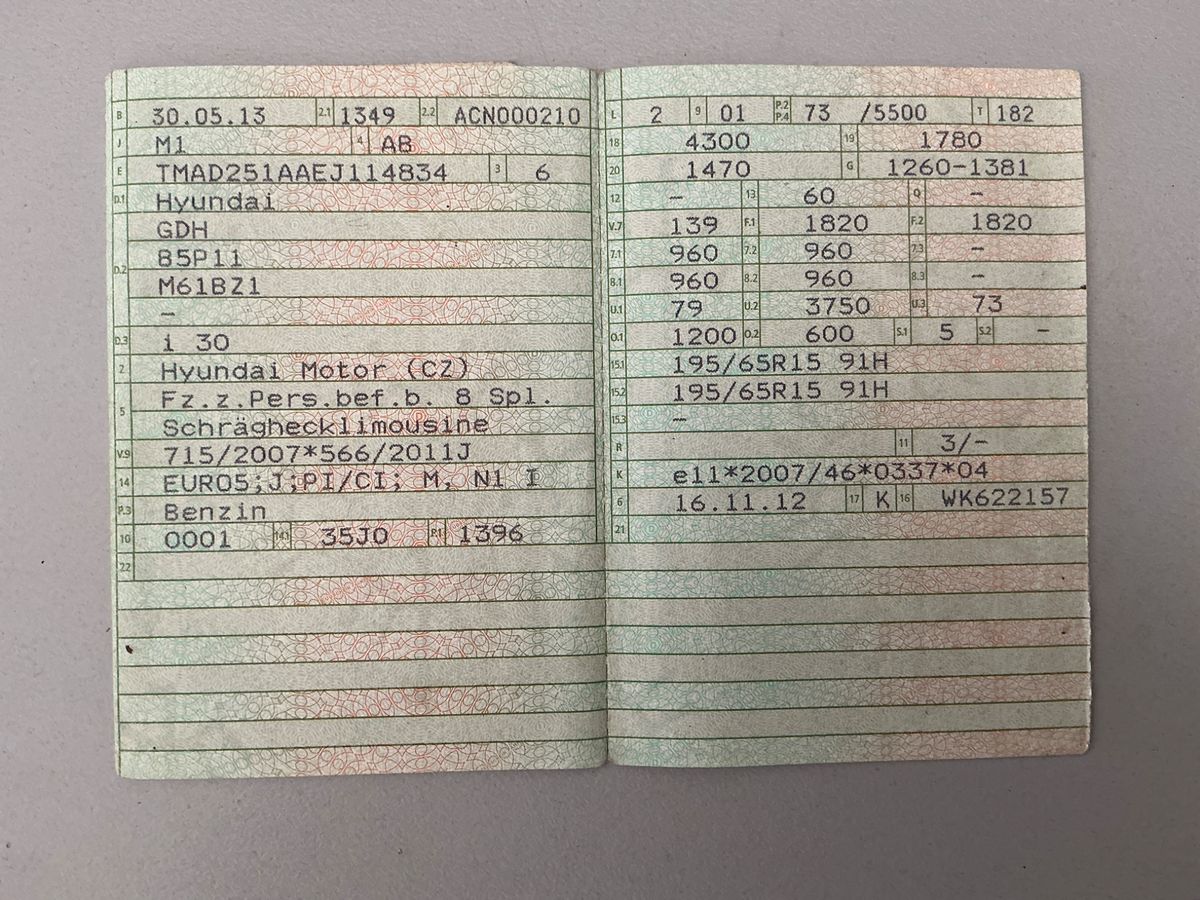 B 30.05.13 2.1 1349 2.2 ACN000210
J M1 4 AB
E TMAD251AAEJ114834 3 6
D.1 Hyundai
GDH
D.2 85P11
M61BZ1
–
D.3 i 30
2 Hyundai Motor (CZ)
5 Fz.z.Pers.bef.b. 8 Spl.
Schräghecklimousine
V.9 715/2007*566/2011J
14 EURO5;J;PI/CI; M, N1 I
P.3 Benzin
10 0001 14.1 35J0 P.1 1396
22
L 2 9 01 P.2 P.4 73 /5500 T 182
18 4300 19 1780
20 1470 G 1260-1381
12 – 13 60 Q –
V.7 139 F.1 1820 F.2 1820
7.1 960 7.2 960 7.3 –
8.1 960 8.2 960 8.3 –
U.1 79 U.2 3750 U.3 73
O.1 1200 O.2 600 S.1 5 S.2 –
15.1 195/65R15 91H
15.2 195/65R15 91H
15.3 –
R 11 3/-
K e11*2007/46*0337*04
6 16.11.12 17 K 16 WK622157
21